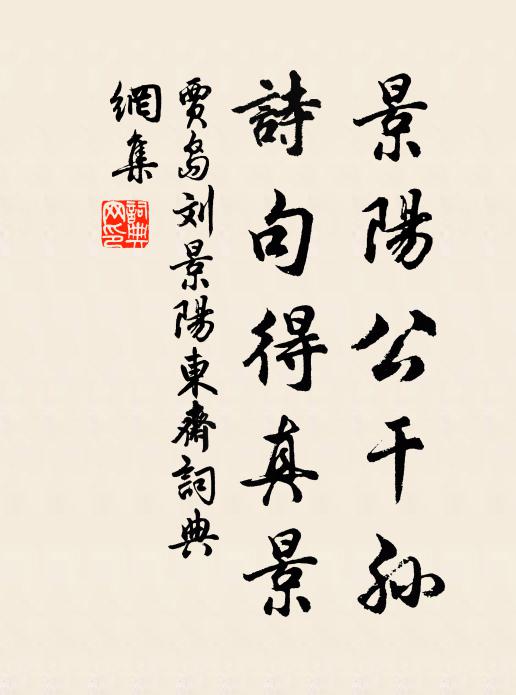 景陽公干孫
詩句得真景
賈島刘景陽東齋詞典
網集
詞典網印